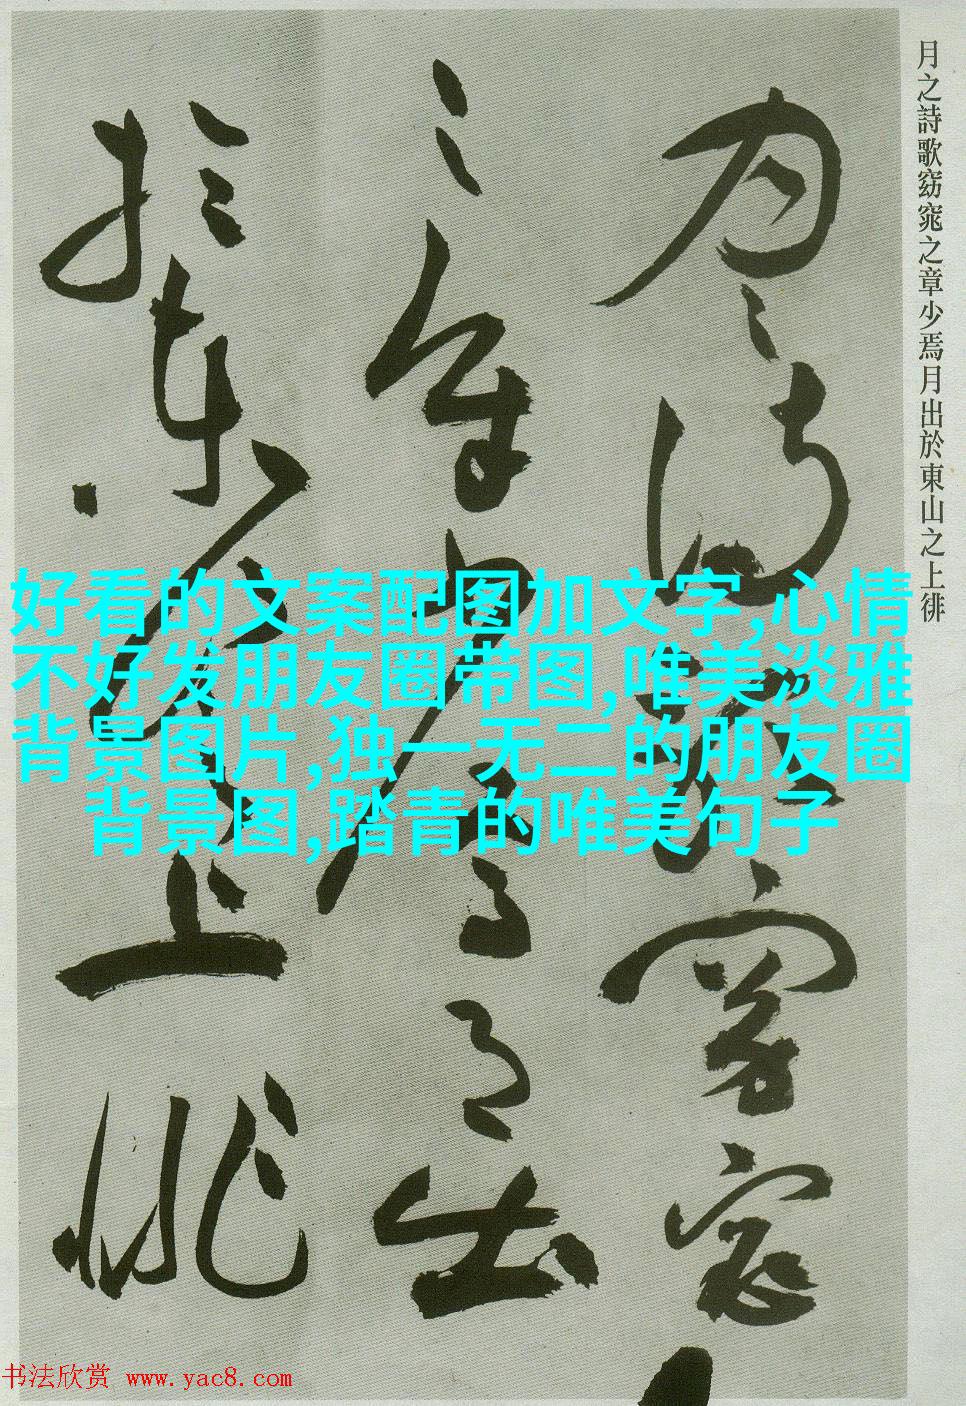 月之詩歌窈窕之章少焉月出於東山之上徘
月之詩歌窈窕
之章少焉月出
於東山之上徘
好看的文案配图加文字,心情
不好发朋友圈带图,唯美淡雅
背景图片,独一无二的朋友圈
背景图,踏青的唯美句子
书法欣赏 www.yac8.com